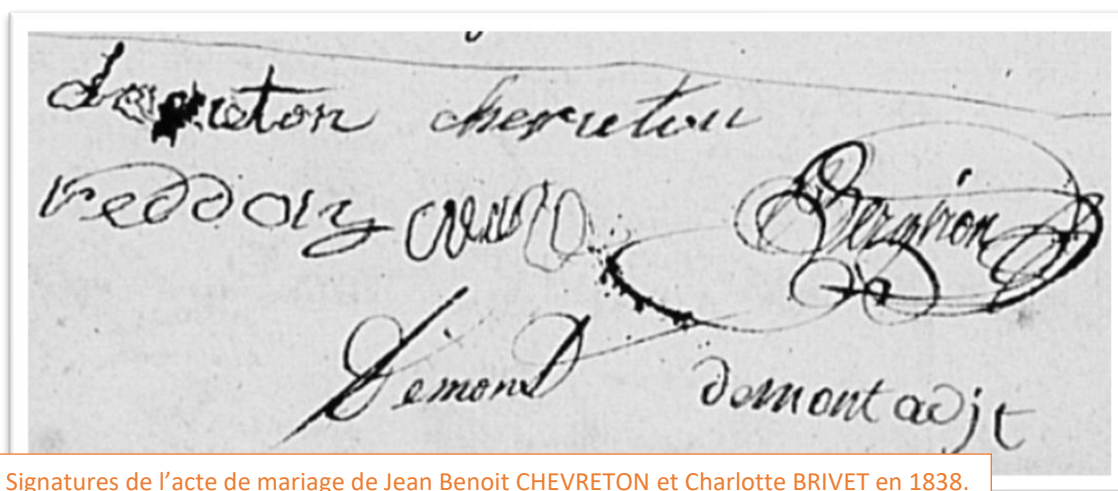 chevreton chevreton
vedday
Bergiron
Démont demont adjt
Signatures de l’acte de mariage de Jean Benoit CHEVRETON et Charlotte BRIVET en 1838.